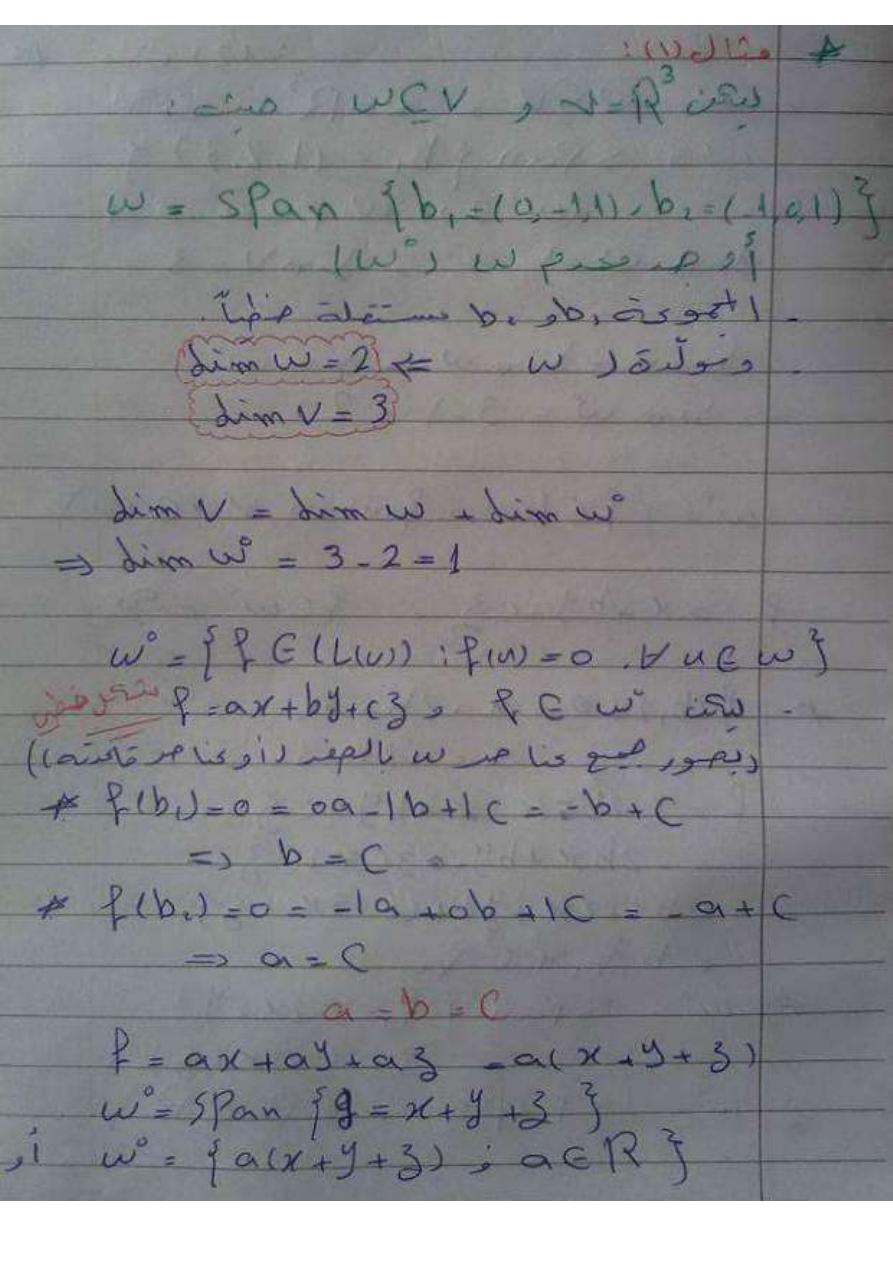 * مثال (1):
ليكن V=R³ و W⊆V حيث:
W = Span {b₁=(0,-1,1), b₂=(-1,0,1)}
أوجد معدم W (W°)
- المجموعة b₁ و b₂ مستقلة خطياً.
- ومولّدة لـ W ⇐ dim W = 2
dim V = 3
dim V = dim W + dim W°
⇒ dim W° = 3 - 2 = 1
W° = {f ∈ (L(V)) : f(u) = 0 . ∀ u ∈ W}
- ليكن f ∈ W° , f = ax + by + cz شكل خطي
(يصور جميع عناصر W بالصفر (أو عناصر قاعدته))
* f(b₁) = 0 = 0a - 1b + 1c = -b + c
⇒ b = c
* f(b₂) = 0 = -1a + 0b + 1c = -a + c
⇒ a = c
a = b = c
f = ax + ay + az = a(x + y + z)
W° = Span {g = x + y + z}
أو W° = {a(x + y + z) ; a ∈ R}